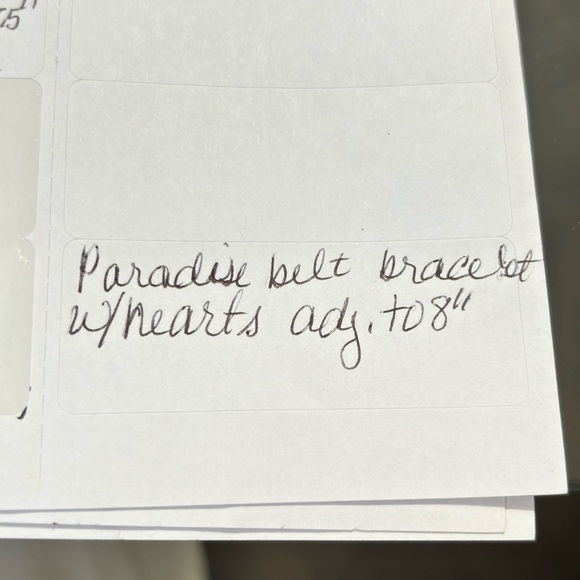 75"
Paradise belt bracelet
w/hearts adj. to 8"